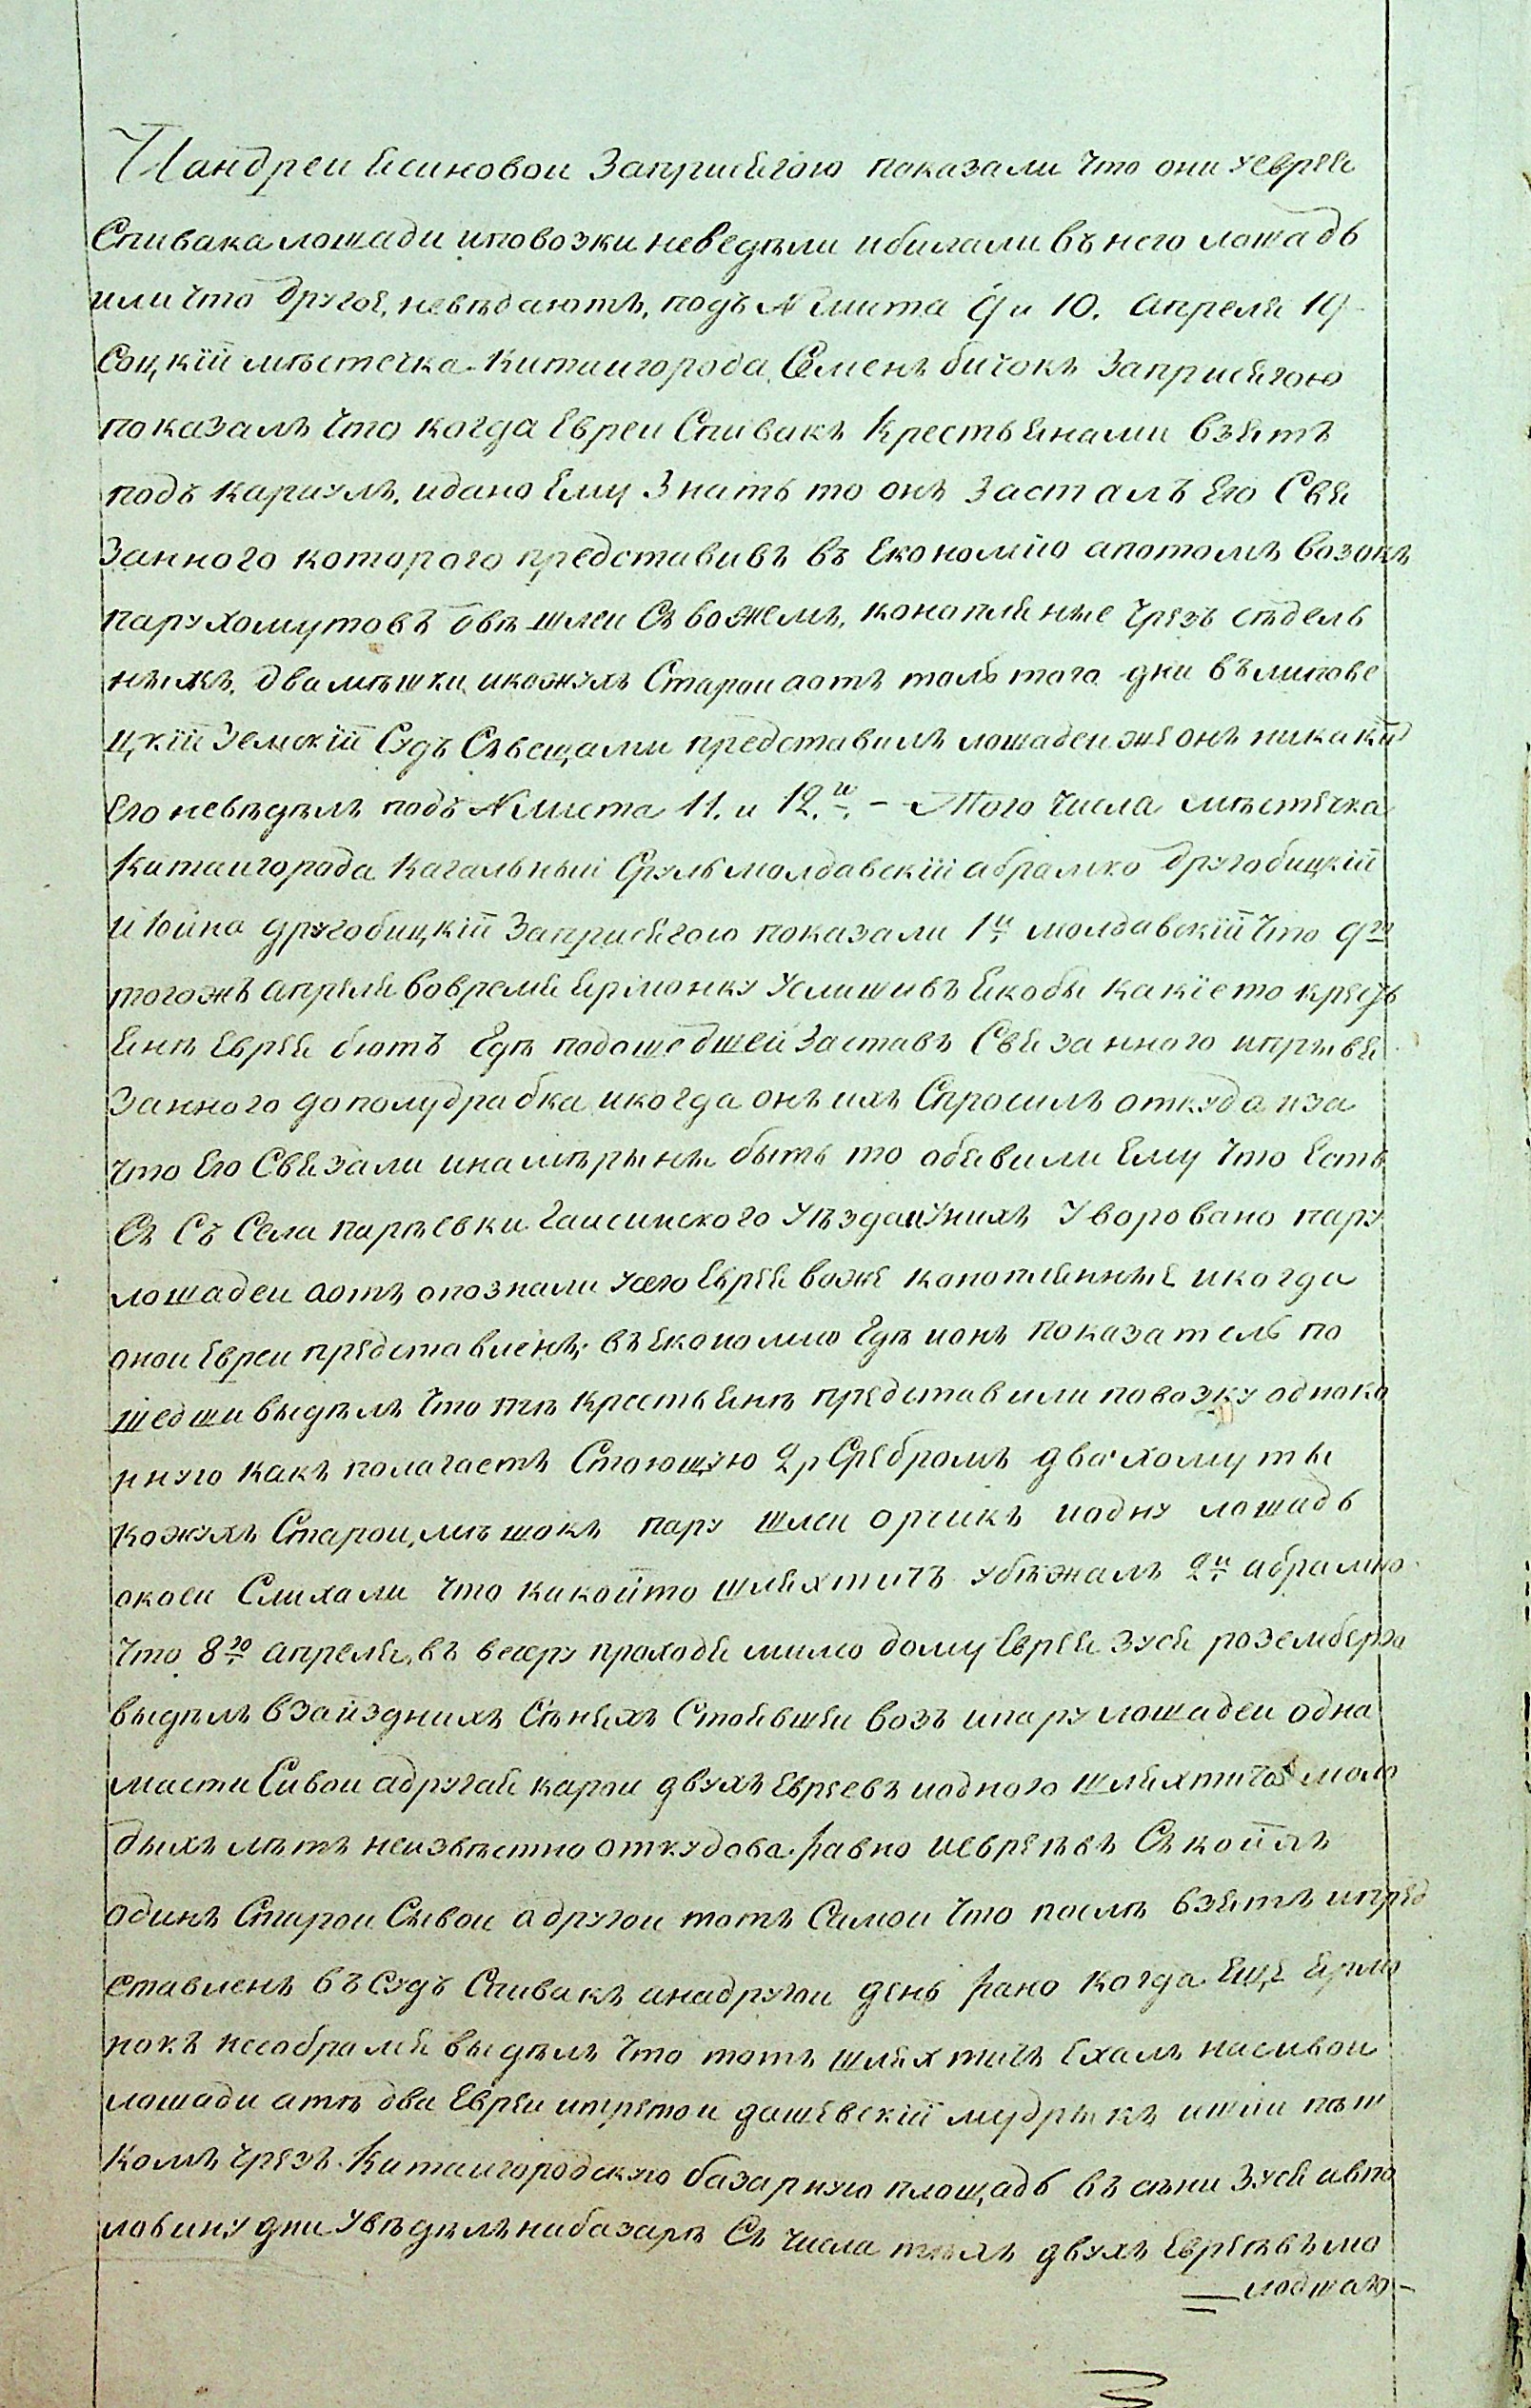 И андреи ясиновои Заприсягою показали что они уеврея
Спивака лошади иповозки неведѣли ибилали въ него лошадь
или что другоя, невѣдаютъ, подъ № листа 9 и 10. апреля 19
Соцкїй мѣстечка Китаигорода Семенъ бичокъ Заприсягою
показалъ что когда Евреи Спивакъ Крестьянами взятъ
подъ караулъ, идано Ему Знать то онъ засталъ Его Свя
Занного которого представивъ въ Економїю апотомъ возокъ
пару хомутовъ двѣ шлеи Съ вожемъ, конапляные чрезъ сѣдель
ныхъ, два мѣшки, икожухъ Старои аотъ толь того дня въ липове
цкїй Земскїй Судъ Съвещами представилъ лошадеи же онъ никаких
Его невѣдѣлъ подъ № листа 11. и 12.и. – Того числа мѣстечка
Китаигорода Кагальный Сруль молдавскїй абрамко другобицкїй
и Юйна другобицкїй Заприсягою показали 1й молдавскїй что 9го
тогожъ апреля вовремя ярмонку Услишивъ якобы какїе то кресть
янѣ Еврея бютъ Гдѣ подошедшей Заставъ Связанного иприве
Занного до полудрабка, икогда онъ ихъ Спросилъ откуда иза
что Его Связали инамѣрены быть то обявили Ему что Есть
Съ Съ Села парѣевки Гаисинского уѣзда иУнихъ Уворовано пару
лошадеи аотъ опознали усего Еврея воже конопляныя икогда
онои Евреи представленъ въ Економию Гдѣ ионъ показатель по
шедши выдѣлъ что тѣ крестьянѣ представили повозку одноко
нную Какъ полагаетъ Стоющую 2р Сребромъ два хомуты
Кожухъ Старои, мѣшокъ пару шлеи орчикъ иодну лошадь
окоеи Слихали что какойто шляхтичъ убѣжалъ 2й абрамко
что 8го апреля, въ вечеру проходя мимо дому Еврея Зуся роземберга
выдѣлъ взаиздныхъ Сѣняхъ Стоявшеи возъ ипару лошадеи одна
масти Сивои адругая карои двухъ Евреевъ иодного шляхтича моло
дыхъ лѣтъ неизвѣстно откудова. равно иевреевъ Съ коихъ
одинъ Старои Сывои адругои тотъ Самои что послѣ взятъ ипред
ставленъ въ Судъ Спивакъ анадругои день рано Когда Еще ярмо
нокъ несобрался выдѣлъ что тотъ шляхтичъ Ехалъ насивои
лошади атѣ два Евреи итретои дашевскїй мудрыкъ ишли пѣш
комъ чрезъ Китаигородскую базарную площадь въ сѣни Зуся ивпо
ловину дни Увѣдѣлъ набазарѣ Съ числа тѣхъ двухъ Евреевъ мо
лодшаго –